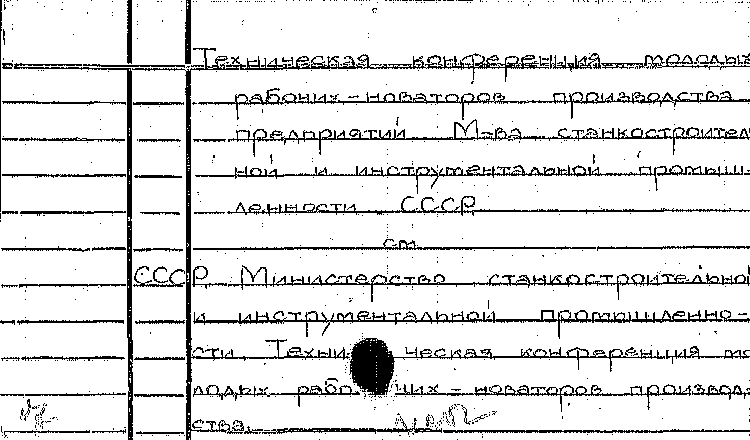 Техническая конференция молодых
рабочих-новаторов производства
предприятий М-ва станкостроител
ной и инструментальной промыш-
ленности СССР
см.
СССР. Министерство станкостроительной
и инструментальной промышленно-
сти. Техническая конференция мо
лодых рабочих-новаторов производ
ства.